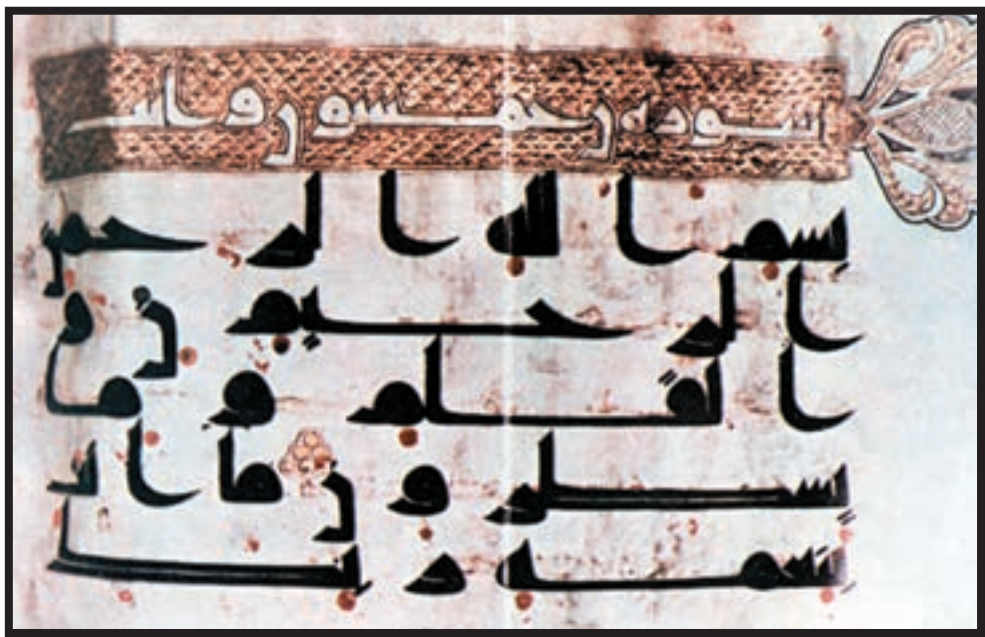 سوره ن خمسون وا
بسم الله الرحمن
الرحيم ن و
القلم وما
يسطرون ما انت
بنعمه ربك